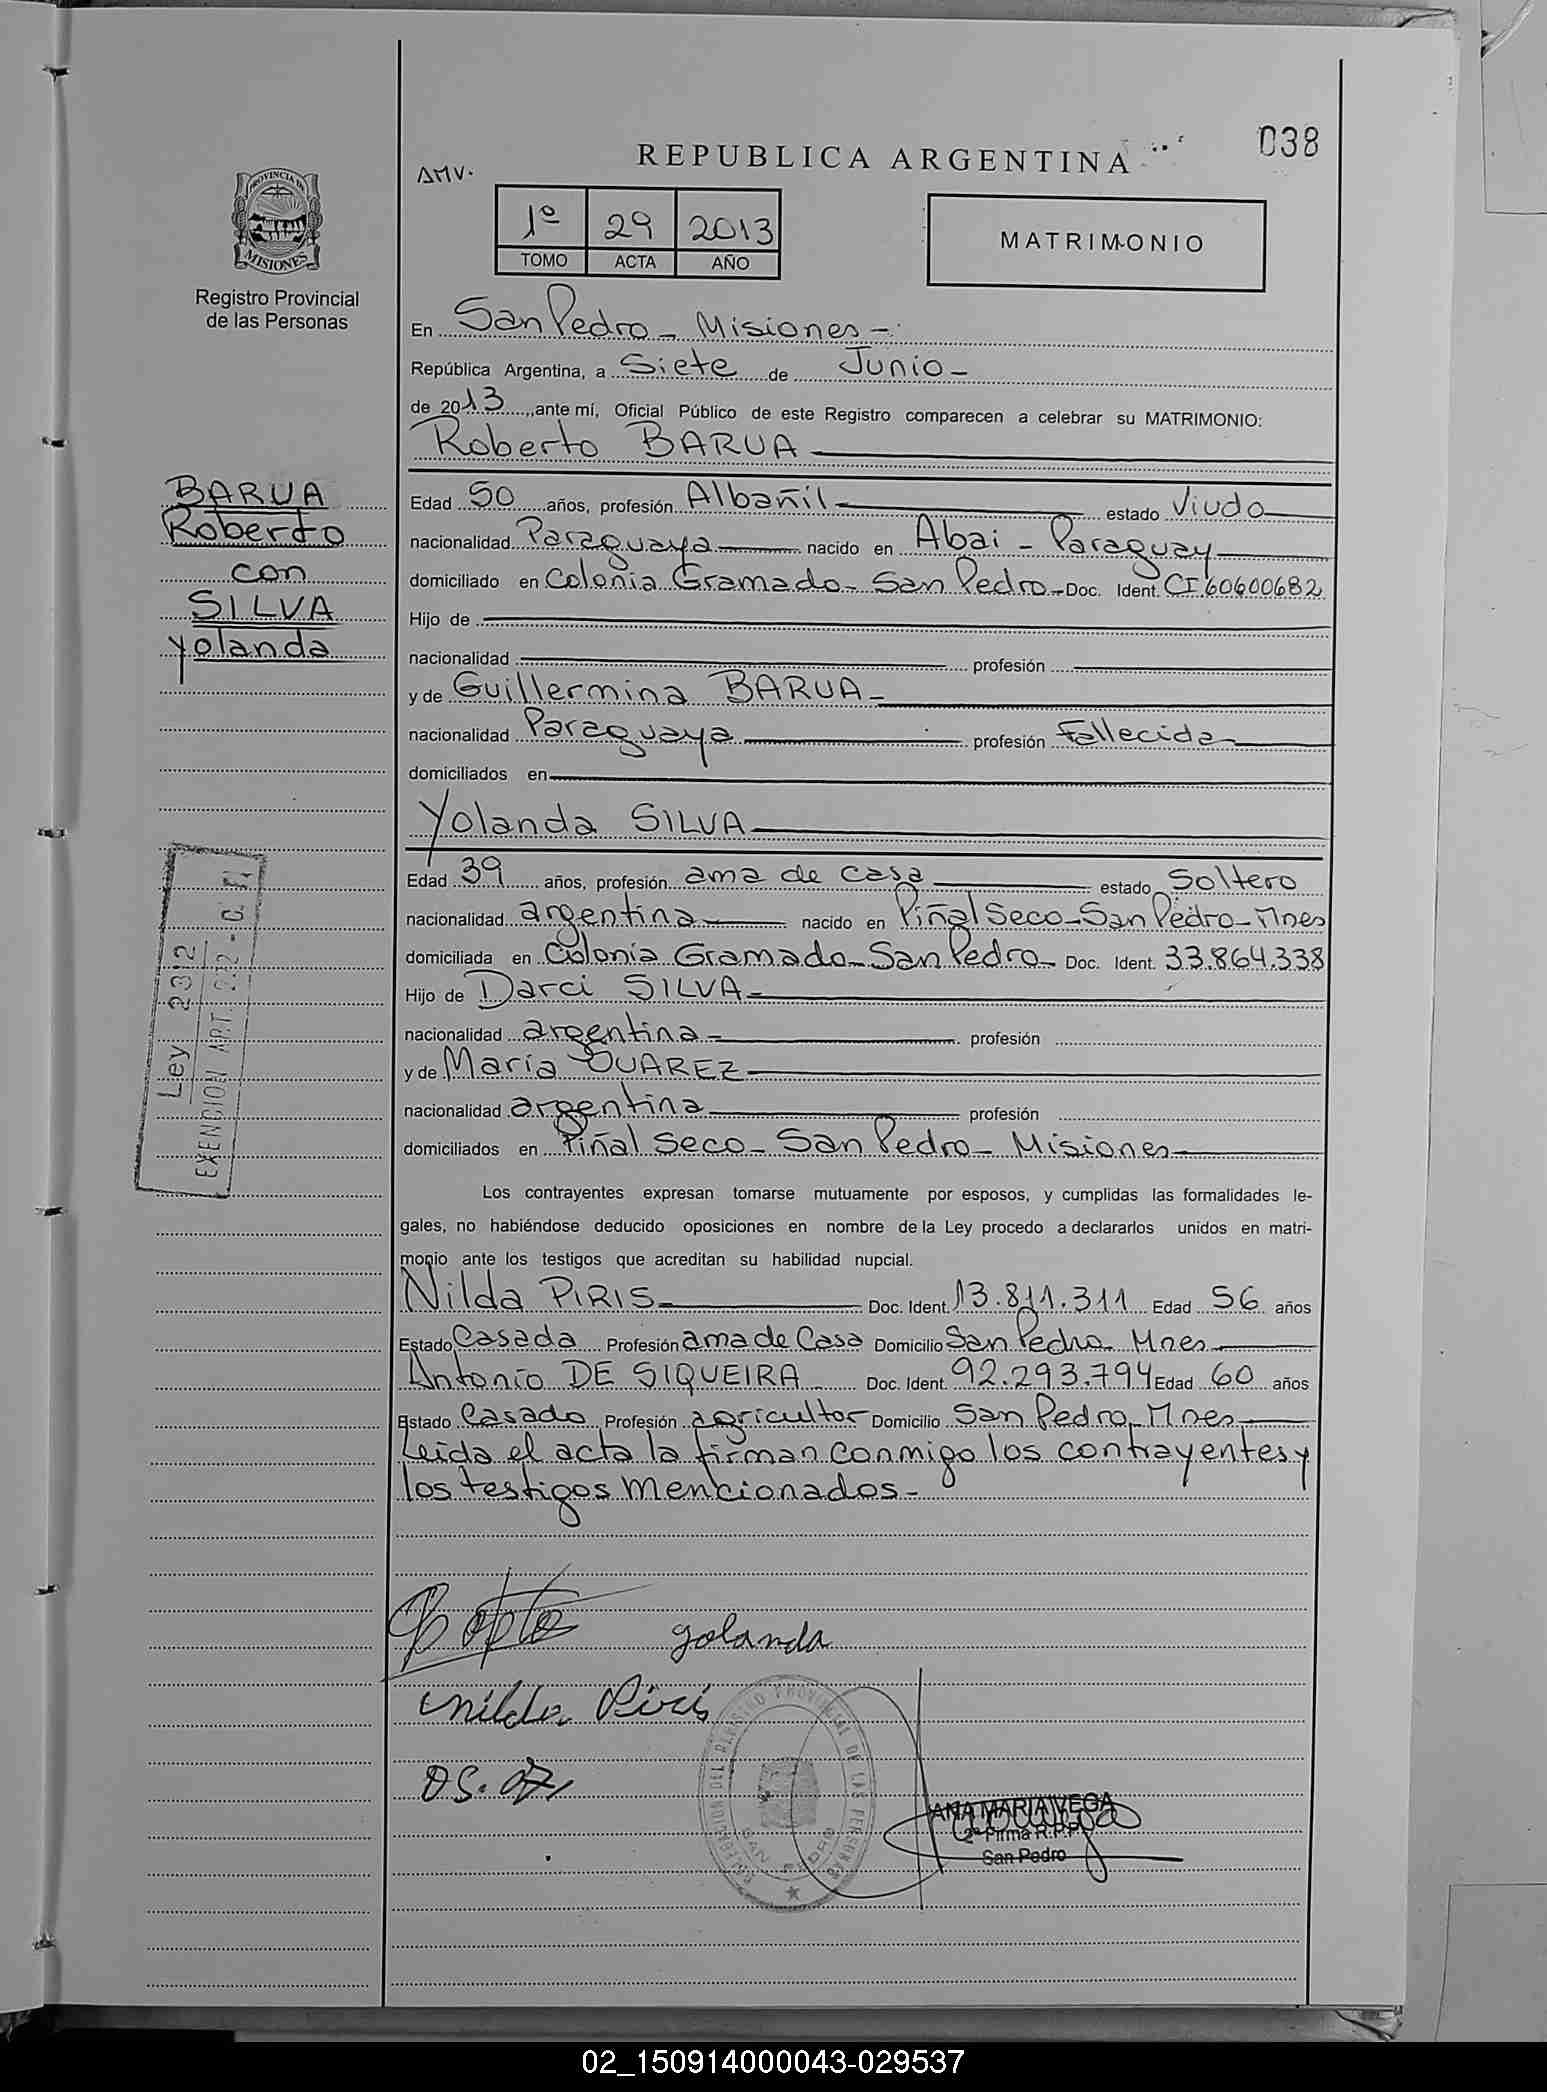 038
REPUBLICA ARGENTINA
AMV.
1º 29 2013
TOMO ACTA AÑO
MATRIMONIO
PROVINCIA DE
MISIONES
Registro Provincial
de las Personas
En San Pedro - Misiones -
República Argentina, a Siete de Junio -
de 2013, ante mí, Oficial Público de este Registro comparecen a celebrar su MATRIMONIO:
Roberto BARUA
BARUA
Roberto
con
SILVA
Yolanda
Edad 50 años, profesión Albañil estado Viudo
nacionalidad Paraguaya nacido en Abai - Paraguay
domiciliado en Colonia Gramado - San Pedro - Doc. Ident. CI.60600682
Hijo de
nacionalidad profesión
y de Guillermina BARUA -
nacionalidad Paraguaya profesión Fallecida
domiciliados en
Yolanda SILVA
Edad 39 años, profesión ama de casa estado Soltero
nacionalidad argentina nacido en Piñal Seco - San Pedro - Mnes
domiciliada en Colonia Gramado - San Pedro - Doc. Ident. 33.864.338
Hijo de Darci SILVA -
nacionalidad argentina - profesión
y de María SUAREZ
nacionalidad argentina profesión
domiciliados en Piñal Seco - San Pedro - Misiones
Ley 2312
EXENCION ART.
Los contrayentes expresan tomarse mutuamente por esposos, y cumplidas las formalidades le-
gales, no habiéndose deducido oposiciones en nombre de la Ley procedo a declararlos unidos en matri-
monio ante los testigos que acreditan su habilidad nupcial.
Nilda PIRIS Doc. Ident. 13.811.311 Edad 56 años
Estado Casada Profesión ama de Casa Domicilio San Pedro - Mnes
Antonio DE SIQUEIRA Doc. Ident. 92.293.794 Edad 60 años
Estado Casado Profesión agricultor Domicilio San Pedro - Mnes
Leida el acta la firman conmigo los contrayentes y
los testigos mencionados -
yolanda
nilda Piris
DELEGACION DEL REGISTRO PROVINCIAL DE LAS PERSONAS
SAN PEDRO
ANA MARIA VEGA
2ª Firma R.P.P.
San Pedro
02_150914000043-029537